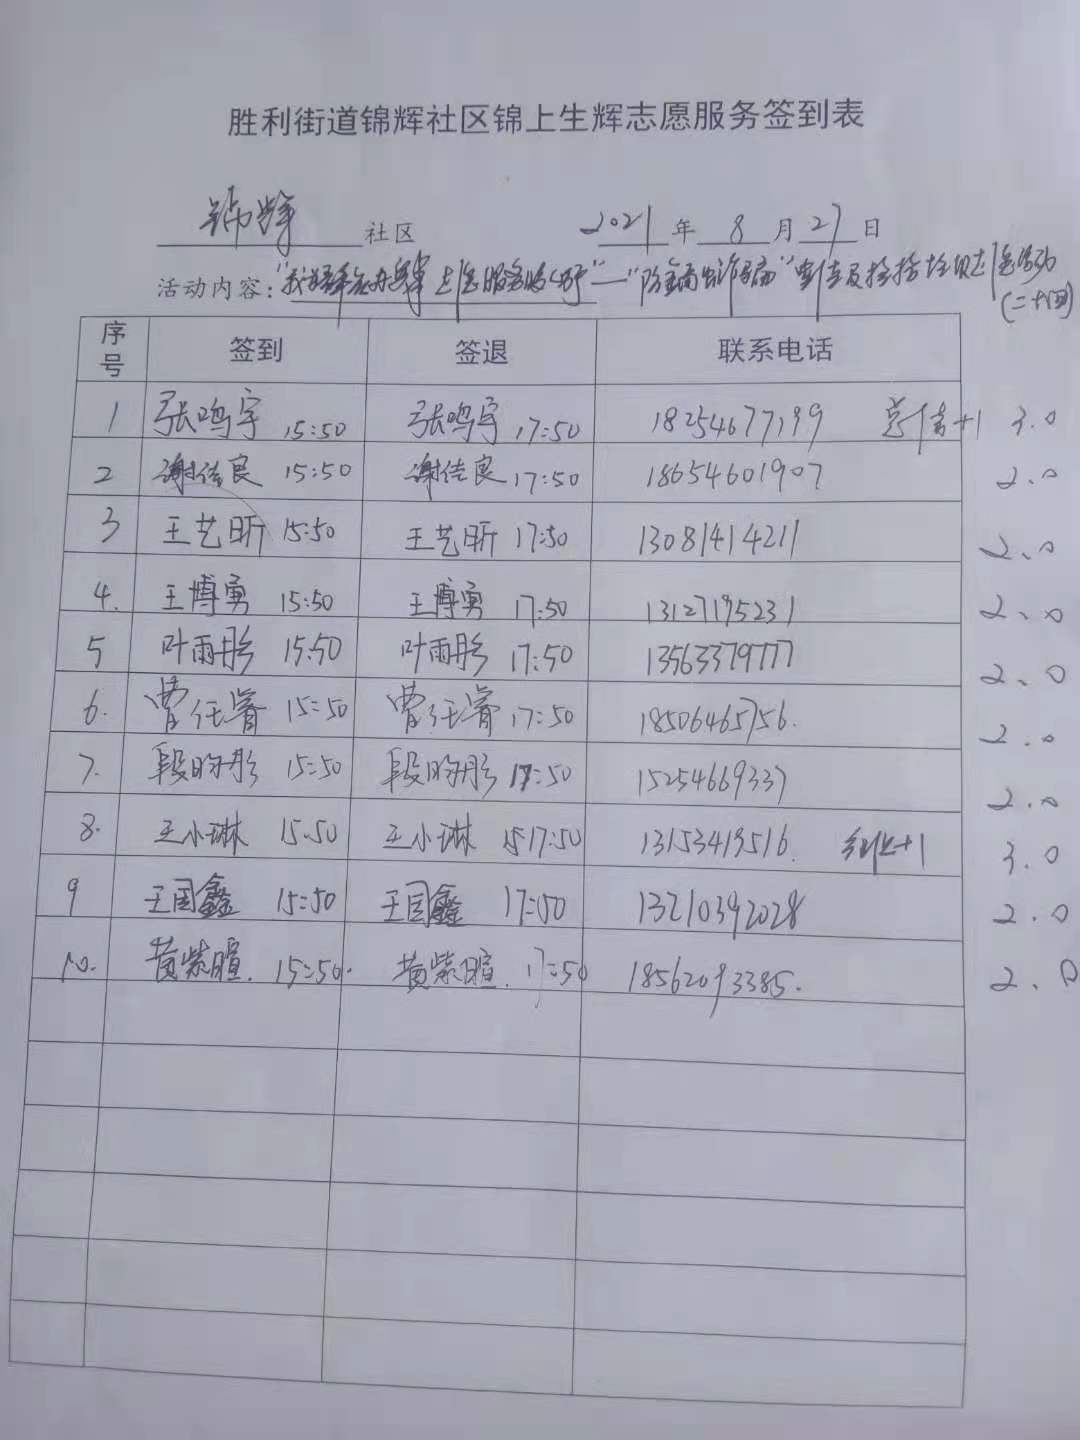 胜利街道锦辉社区锦上生辉志愿服务签到表
锦辉 社区 2021 年 8 月 27 日
活动内容：“我为群众办实事 志愿服务” — “防电诈骗” 宣传及捡拾垃圾志愿活动
(二十四)
序号 签到 签退 联系电话
1 张鸣宇 15:50 张鸣宇 17:50 18254677199 +1 3.0
2 谢佳良 15:50 谢佳良 17:50 18654601907 2.0
3 王艺昕 15:50 王艺昕 17:50 13081414211 2.0
4. 王博勇 15:50 王博勇 17:50 13127195231 2.0
5 叶雨彤 15:50 叶雨彤 17:50 13563379777 2.0
6. 曹任睿 15:50 曹任睿 17:50 18506465756. 2.0
7. 段昀彤 15:50 段昀彤 17:50 15254669337 2.0
8. 王小琳 15:50 王小琳 17:50 13153419516. +1 3.0
9 王国鑫 15:50 王国鑫 17:50 13210392028 2.0
10. 黄紫暄. 15:50. 黄紫暄. 17:50 18562093385. 2.0